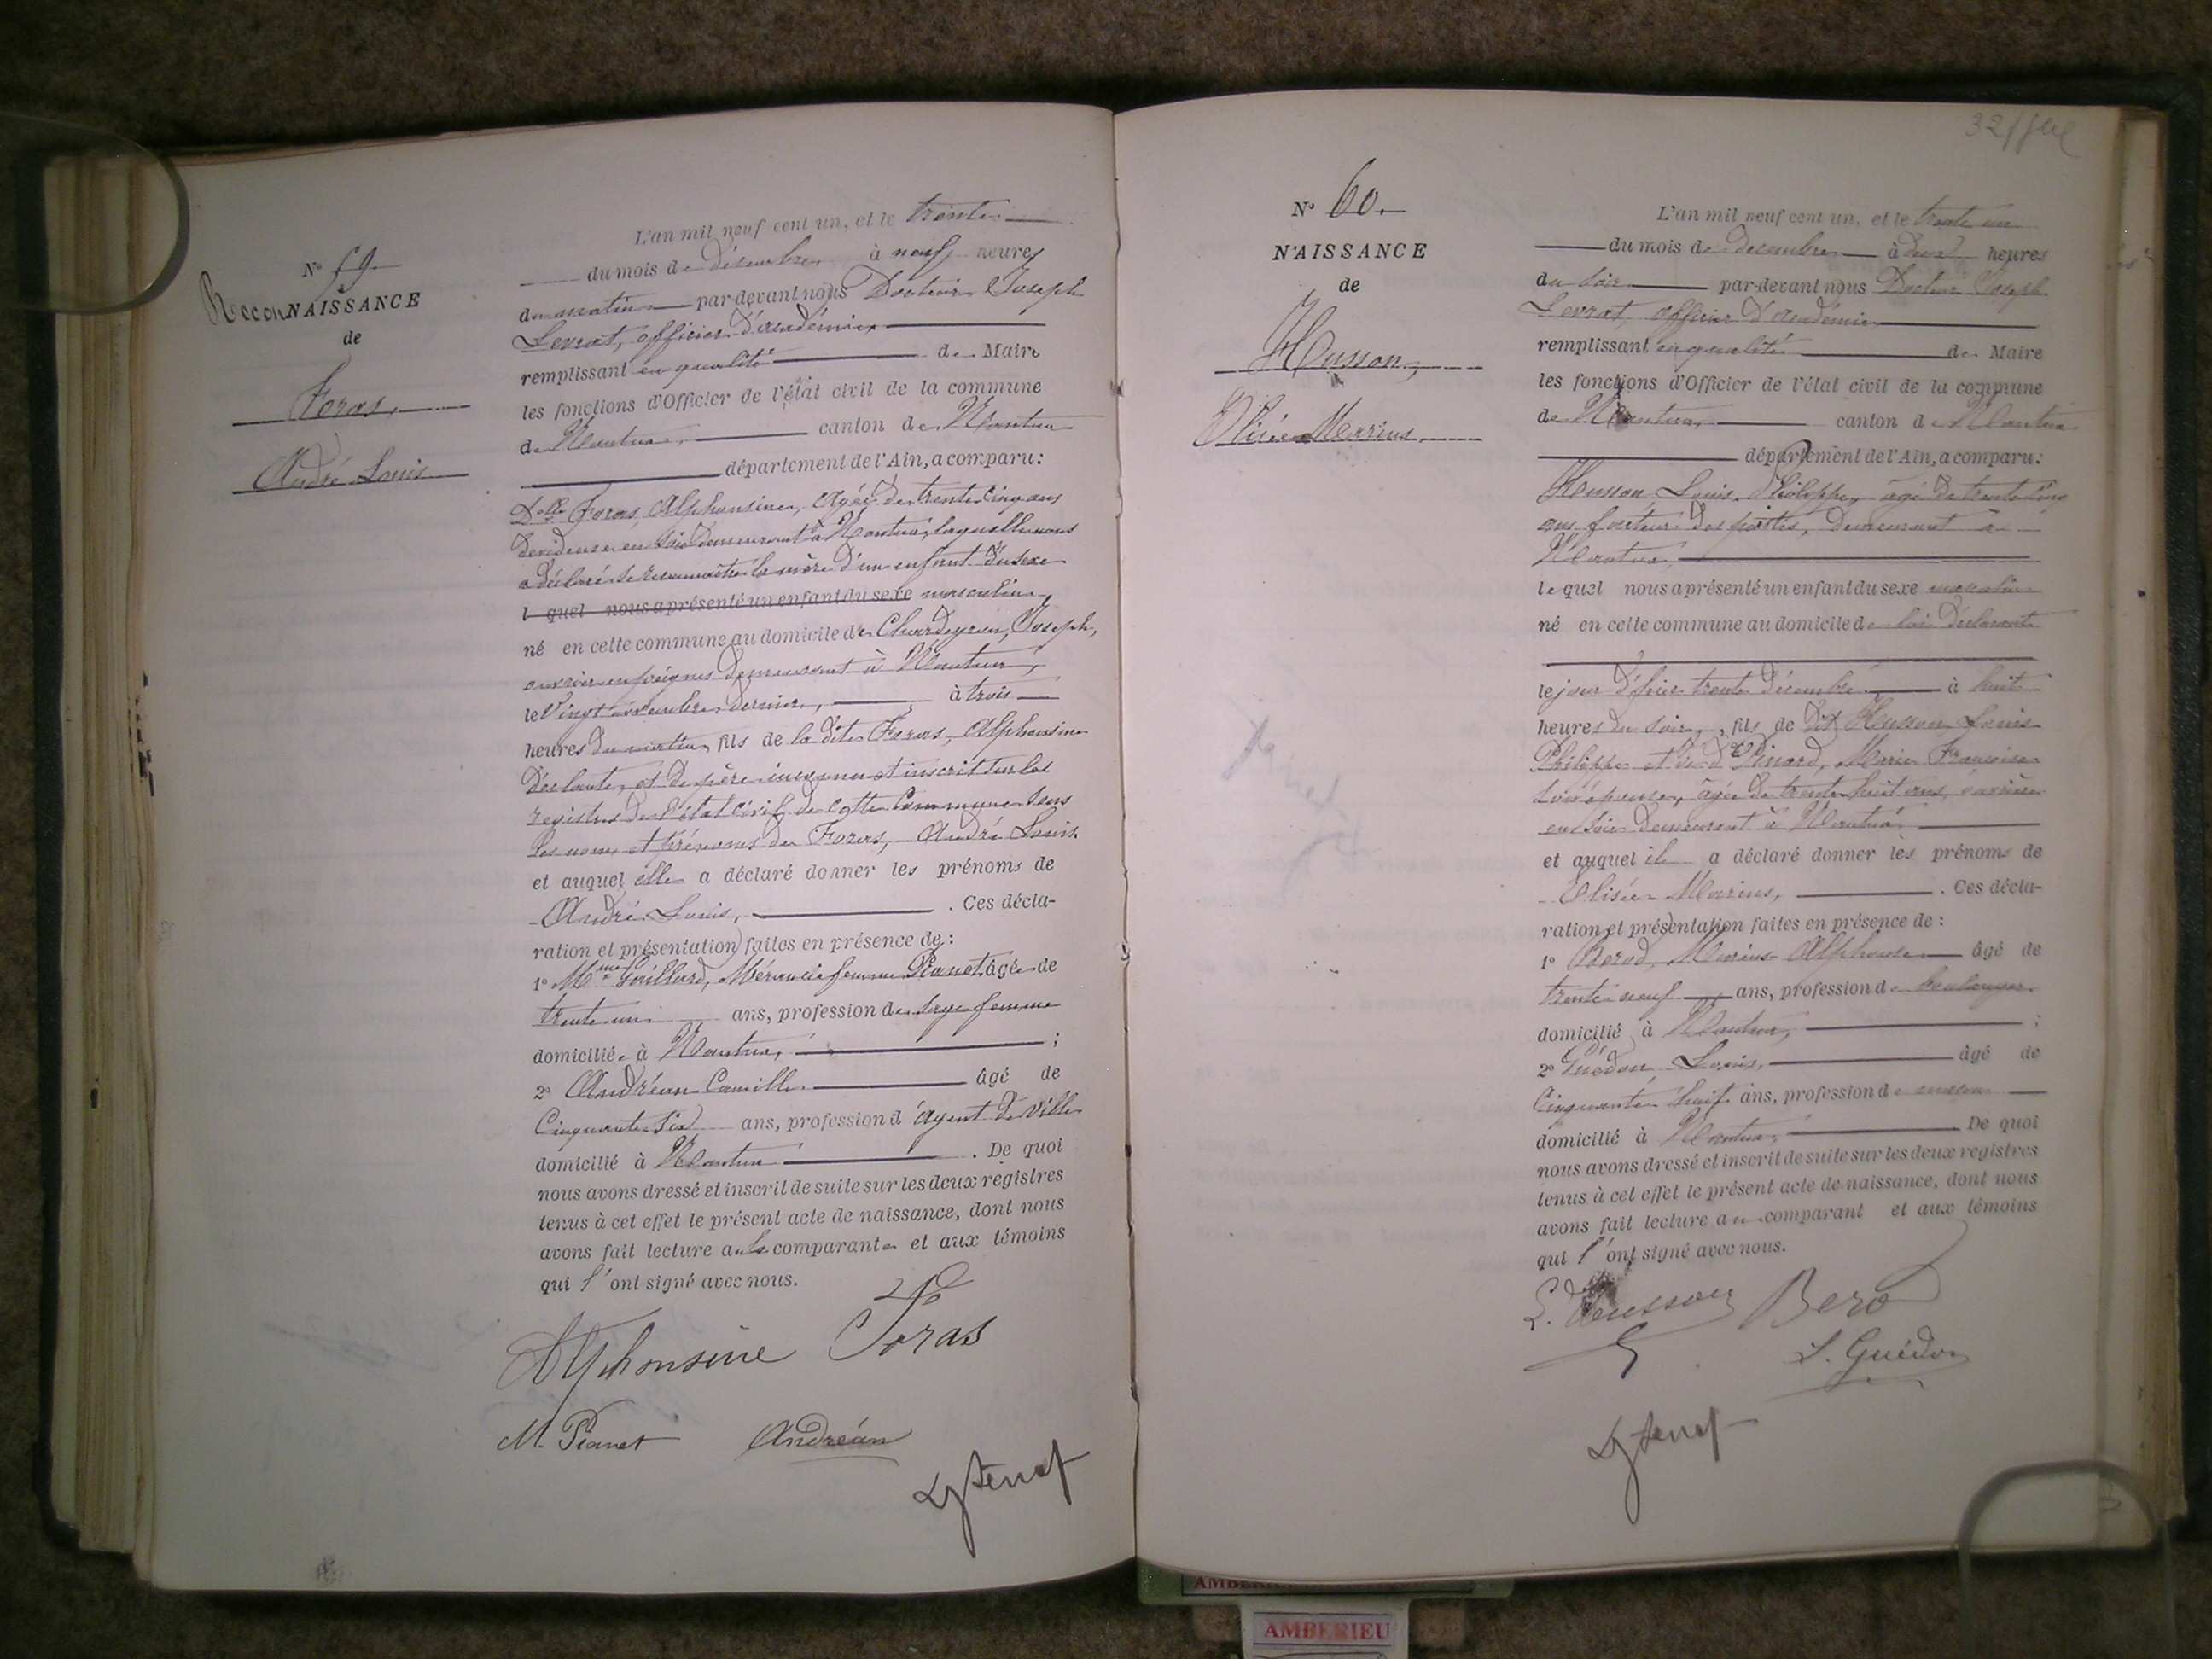 N° 59
ReconNAISSANCE
de
Foras,
André Louis
L'an mil neuf cent un, et le trente
du mois de décembre à neuf heures
du matin par-devant nous Docteur Joseph
Levrat, officier d'académie
remplissant en qualité de Maire
les fonctions d'Officier de l'état civil de la commune
de Nantua, canton de Nantua
département de l'Ain, a comparu:
Delle Foras, Alphonsine, âgée de trente cinq ans
devideuse en soie demeurant à Nantua, laquelle nous
a déclaré se reconnaitre la mère d'un enfant du sexe
l quel nous a présenté un enfant du sexe masculin
né en cette commune au domicile de Chardeyron, Joseph,
ouvrier en peignes demeurant à Nantua,
le Vingt novembre dernier, à trois
heures du matin, fils de la dite Foras, Alphonsine
déclante, et de père inconnu et inscrit sur les
registres de l'état civil de cette Commune sous
les noms et prénoms de Foras, André Louis
et auquel elle a déclaré donner les prénoms de
André Louis, . Ces décla-
ration et présentation faites en présence de:
1° Mme Gaillard, Mérancie femme Pianet âgée de
trente un ans, profession de sage femme
domiciliée à Nantua, ;
2° Andréan Camille âgé de
Cinquante six ans, profession d'agent de ville
domicilié à Nantua . De quoi
nous avons dressé et inscrit de suite sur les deux registres
tenus à cet effet le présent acte de naissance, dont nous
avons fait lecture a la comparante et aux témoins
qui l'ont signé avec nous.
Alphonsine Foras
M. Pianet Andréan
32
N° 60.
NAISSANCE
de
Husson,
Elisée Marius,
L'an mil neuf cent un, et le trente un
du mois de decembre à deux heures
du soir par-devant nous Docteur Joseph
Levrat, officier d'académie
remplissant en qualité de Maire
les fonctions d'Officier de l'état civil de la commune
de Nantua, canton de Nantua
département de l'Ain, a comparu:
Husson Louis Philippe, âgé de trente cinq
ans facteur des postes, demeurant à
Nantua
lequel nous a présenté un enfant du sexe masculin
né en cette commune au domicile de lui déclarant
le jour d'hier trente décembre à huit
heures du soir, fils de dit Husson Louis
Philippe et de de Pinard, Marie Françoise
son épouse, âgée de trente huit ans, ouvrière
en soie demeurant à Nantua,
et auquel il a déclaré donner les prénoms de
Elisée Marius, . Ces décla-
ration et présentation faites en présence de:
1° Berod, Marius Alphonse âgé de
trente neuf ans, profession de boulanger
domicilié à Nantua, ;
2° Guédon Louis, âgé de
Cinquante huit ans, profession de
domicilié à Nantua, De quoi
nous avons dressé et inscrit de suite sur les deux registres
tenus à cet effet le présent acte de naissance, dont nous
avons fait lecture au comparant et aux témoins
qui l'ont signé avec nous.
L. Husson Berod
L. Guédon
AMBERIEU